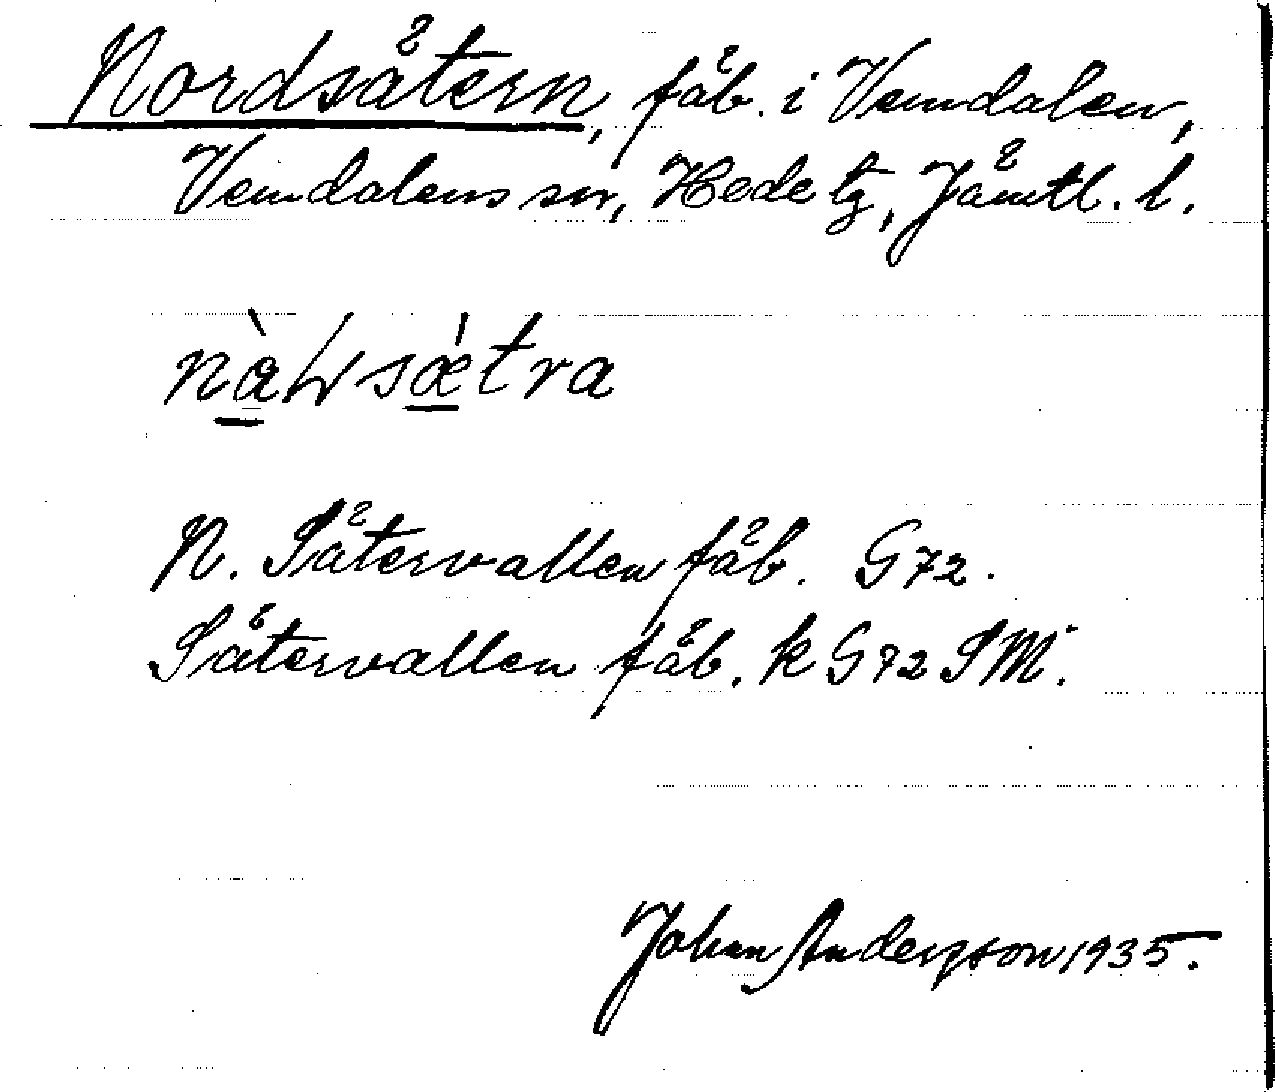 Nordsätern, fäb. i Vemdalen,
Vemdalens sn, Hede tg, Jämtl. l.
sǽtra
N. Sätervallen fäb. G72.
Sätervallen fäb. k G72 SM.
Johan Anderson 1935.